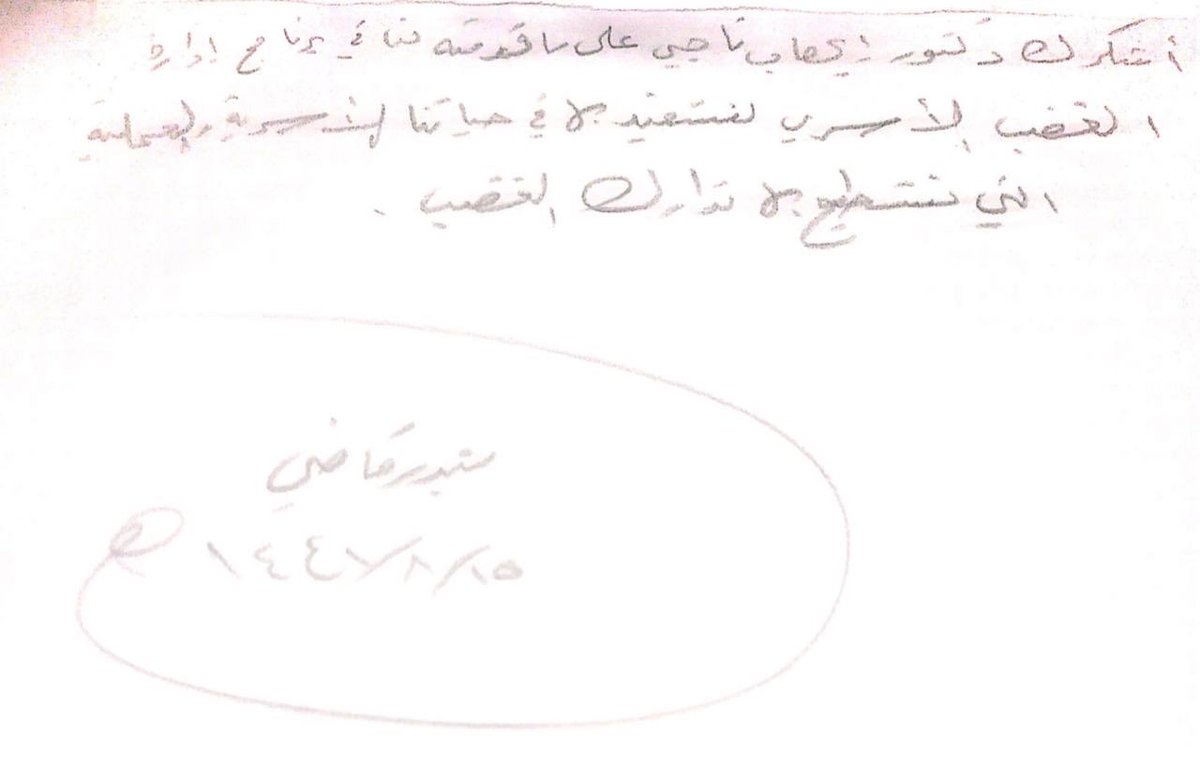 أشكرك دكتور إيهاب ناجي على ما قدمته لنا في برنامج إدارة
الغضب الأسري لنستفيد بها في حياتنا الأسرية والعملية
التي نستطيع بها تدارك الغضب .
بدر قاضي
١٤٤٧/٨/١٥ هـ